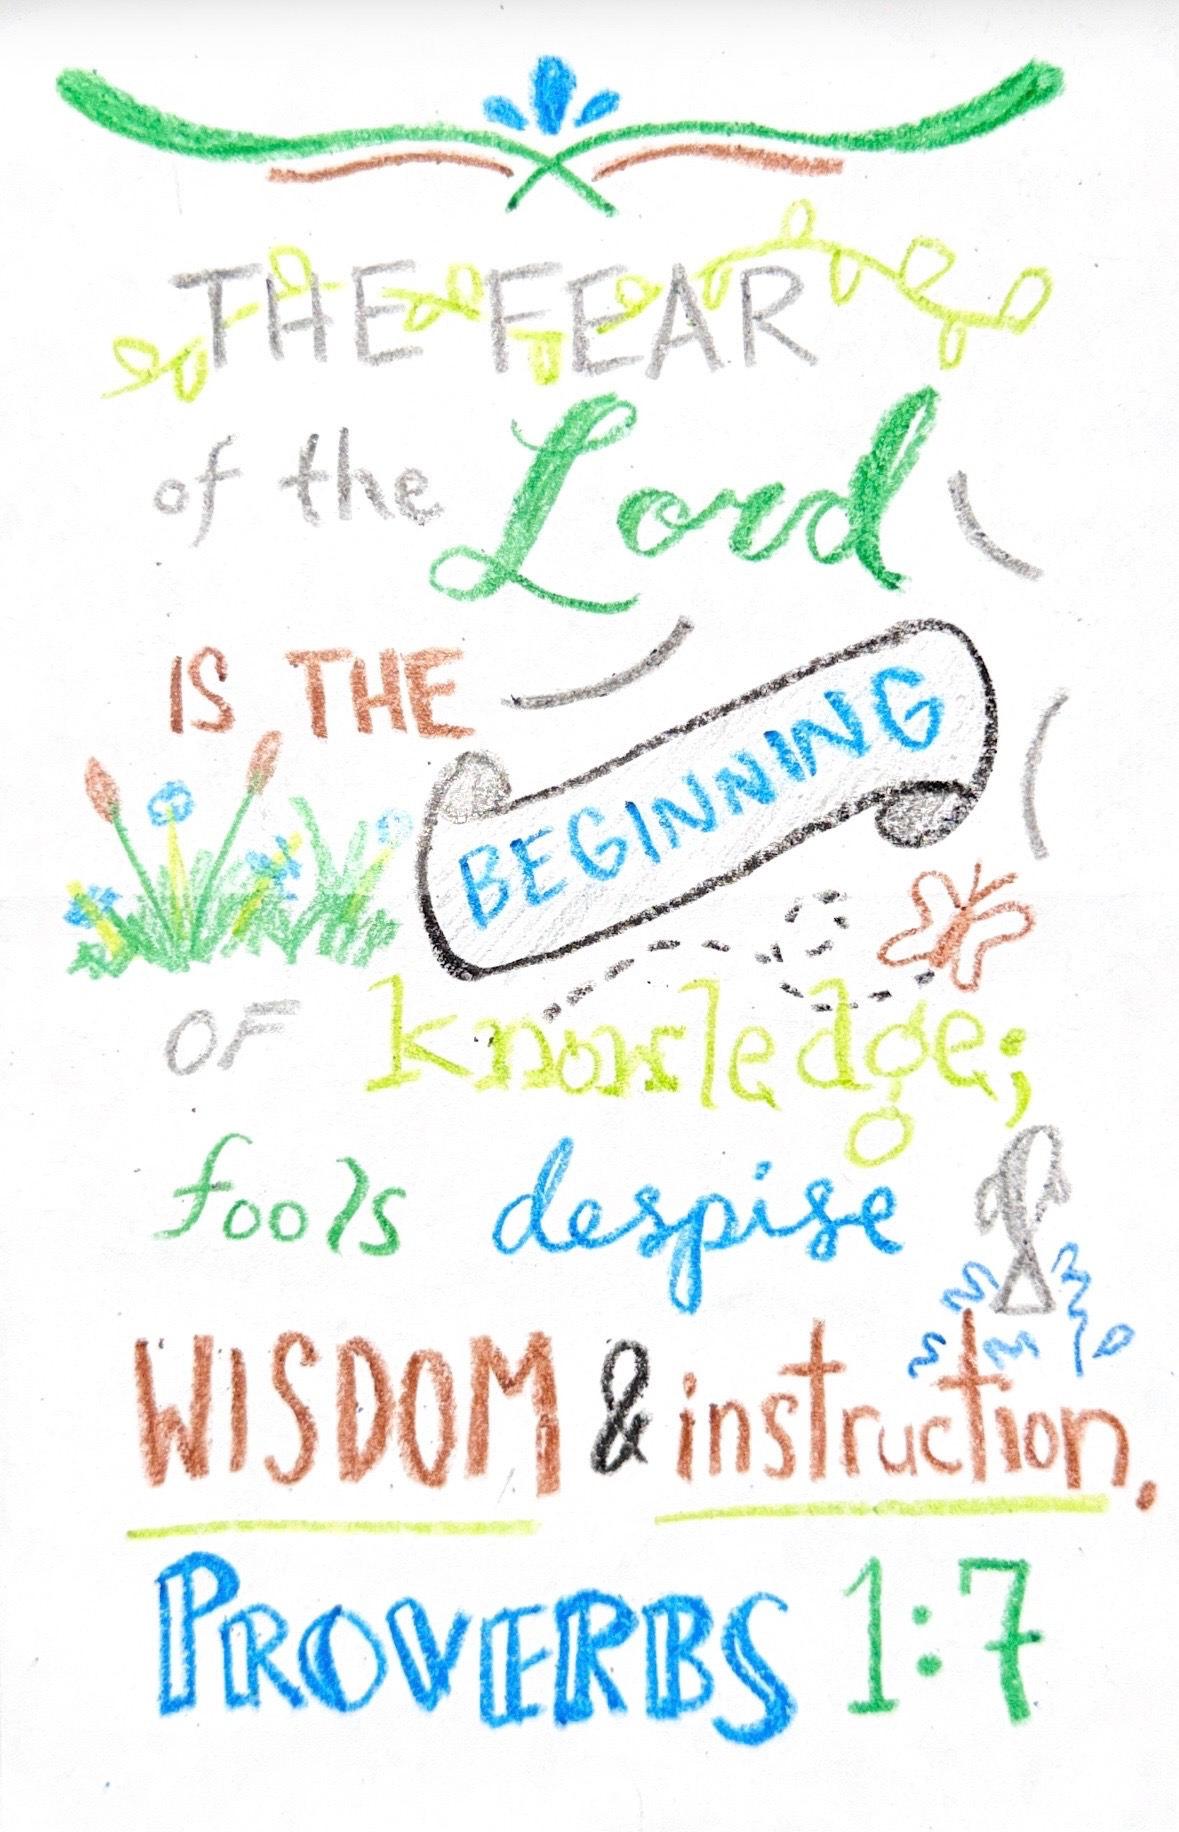 THE FEAR
of the Lord
IS THE
BEGINNING
OF knowledge;
fools despise
WISDOM & instruction.
PROVERBS 1:7